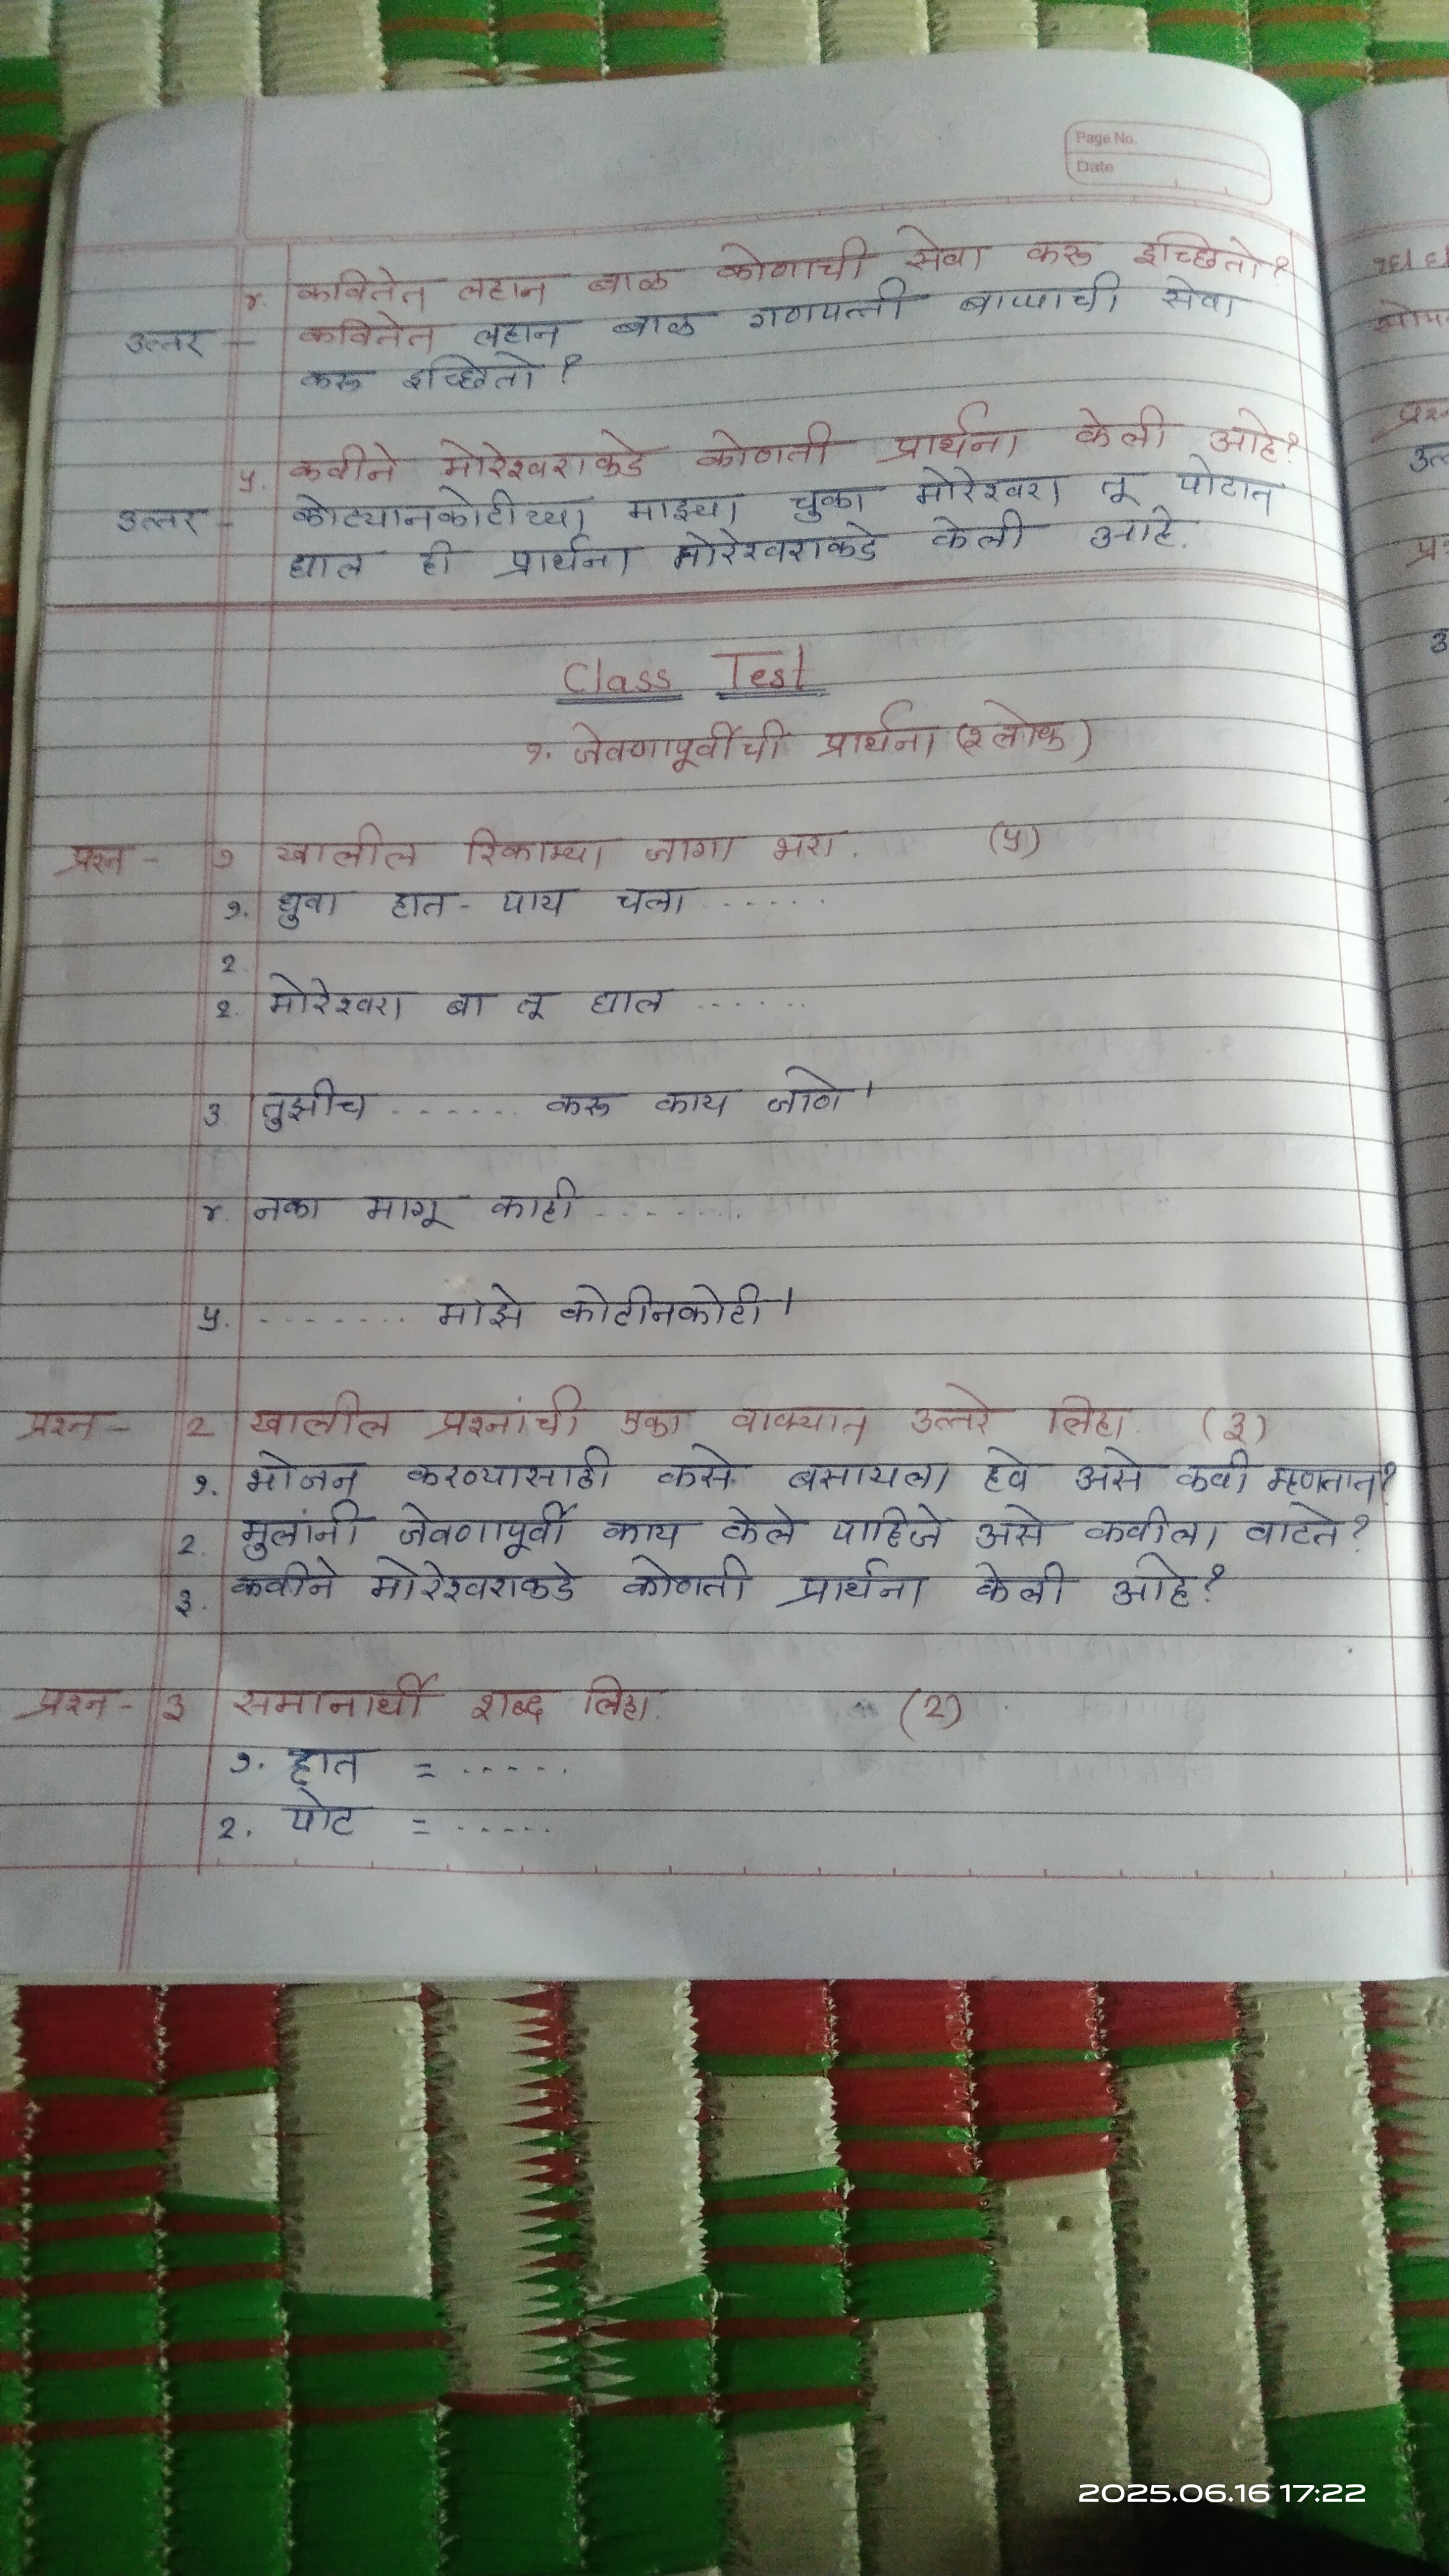 Page No.
Date
४. कवितेत लहान बाळ कोणाची सेवा करू इच्छितो?
उत्तर - कवितेत लहान बाळ गणपत्ती बाप्पाची सेवा
करू इच्छितो?
५. कवीने मोरेश्वराकडे कोणती प्रार्थना केली आहे?
उत्तर - कोट्यानकोटीच्या माझ्या चुका मोरेश्वरा तू पोटात
घाल ही प्रार्थना मोरेश्वराकडे केली आहे.
Class Test
१. जेवणापूर्वीची प्रार्थना (श्लोक)
प्रश्न - १ खालील रिकाम्या जागा भरा. (५)
१. धुवा हात - पाय चला ......
२
२. मोरेश्वरा बा तू घाल ......
३ तुझीच ...... करू काय जाणे।
४. नका मागू काही ........
५. ........ माझे कोटीनकोटी।
प्रश्न - २ खालील प्रश्नांची एका वाक्यात उत्तरे लिहा. (३)
१. भोजन करण्यासाठी कसे बसायला हवे असे कवी म्हणतात?
२. मुलांनी जेवणापूर्वी काय केले पाहिजे असे कवीला वाटते?
३. कवीने मोरेश्वराकडे कोणती प्रार्थना केली आहे?
प्रश्न - ३ समानार्थी शब्द लिहा. (२)
१. हात = .....
२. पोट = .....
2025.06.16 17:22